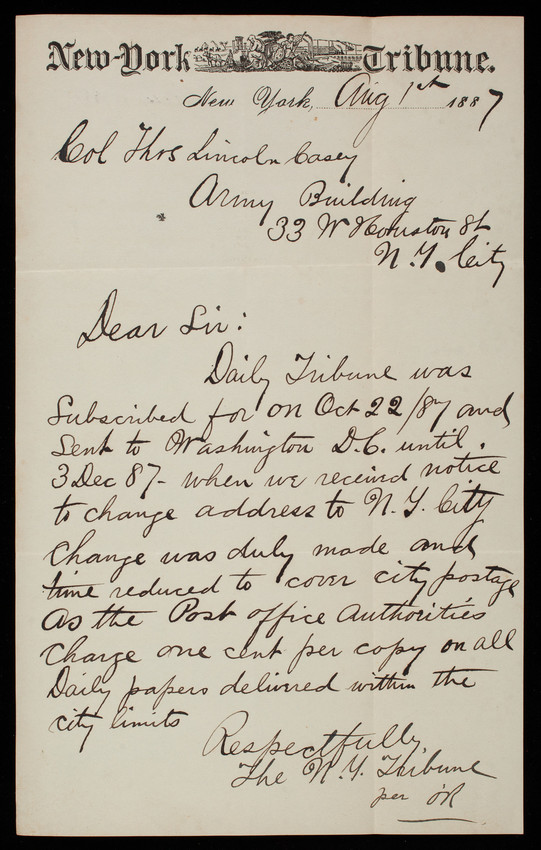 New-York Tribune.
New York, Aug 1st 1887
Col Thos Lincoln Casey
Army Building
33 W Houston St
N.Y. City
Dear Sir:
Daily Tribune was
Subscribed for on Oct 22/87 and
Sent to Washington D.C. until
3 Dec 87 - when we received notice
to change address to N.Y. City
Change was duly made and
time reduced to cover city postage
As the Post office Authorities
Charge one cent per copy on all
Daily papers delivered within the
city limits
Respectfully,
The N.Y. Tribune
per